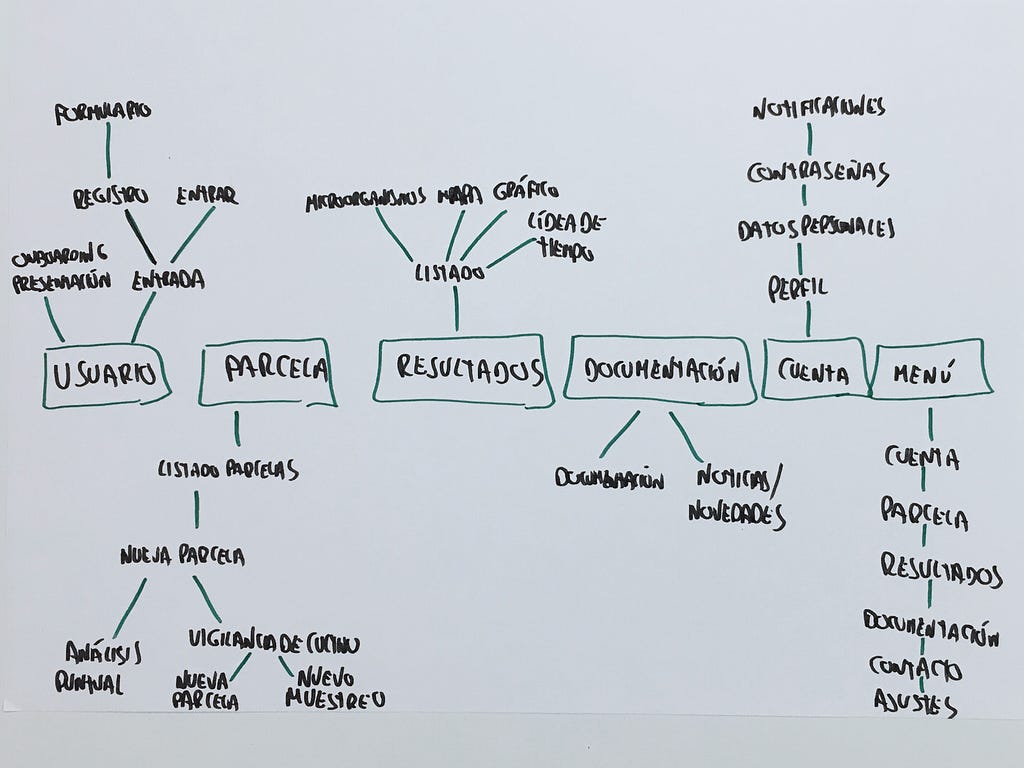 FORMULARIO
REGISTRO
ENTRAR
ONBOARDING
PRESENTACIÓN
ENTRADA
USUARIO
PARCELA
LISTADO PARCELAS
NUEVA PARCELA
ANÁLISIS
PUNTUAL
VIGILANCIA DE CULTIVO
NUEVA
PARCELA
NUEVO
MUESTREO
MICROORGANISMOS
MAPA
GRÁFICO
LÍDEA DE
TIEMPO
LISTADO
RESULTADOS
DOCUMENTACIÓN
DOCUMENTACIÓN
NOTICIAS/
NOVEDADES
NOTIFICACIONES
CONTRASEÑAS
DATOS PERSONALES
PERFIL
CUENTA
MENÚ
CUENTA
PARCELA
RESULTADOS
DOCUMENTACIÓN
CONTACTO
AJUSTES